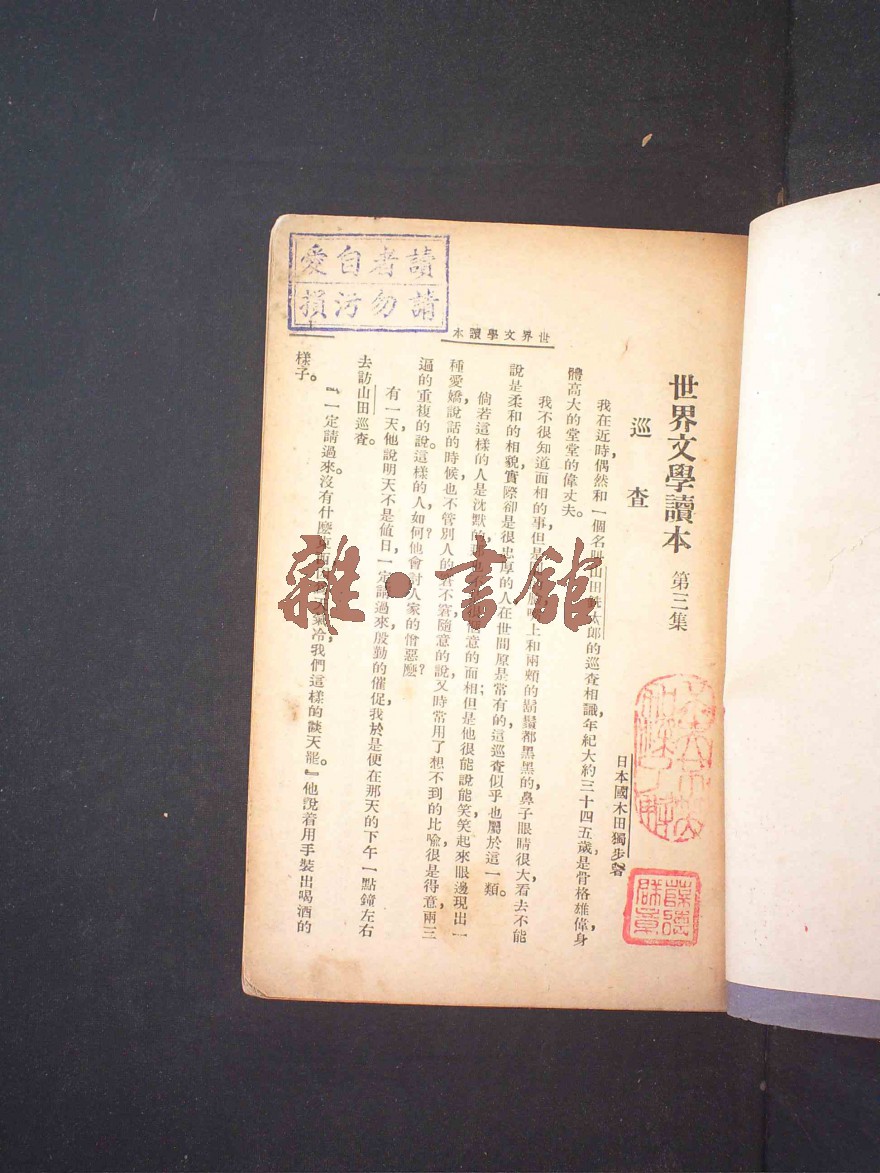 讀者自愛
請勿污損
世界文學讀本
一
世界文學讀本 第三集
巡查
日本國木田獨步著
我在近時偶然和一個名叫山田 太郎的巡查相識，年紀大約三十四五歲，是骨格雄偉，身
體高大的堂堂的偉丈夫。
我不很知道面相的事，但是 上和兩頰的鬍鬚都黑黑的，鼻子眼睛很大，看去不能
說是柔和的相貌，實際卻是很忠厚的人，在世間原是常有的，這巡查似乎也屬於這一類。
倘若這樣的人是沈默的 意的面相；但是他很能說能笑，笑起來眼邊現出一
種愛嬌，說話的時候也不管別人的 不 ，隨意的說，又時常用了想不到的比喩，很是得意，兩三
遍的重複的說。這樣的人，如何？他會討人家的憎惡麽？
有一天他說明天不是值日，一定請過來，殷勤的催促，我於是便在那天的下午一點鐘左右
去訪山田巡查。
『一定請過來。沒有什麽東西， 天氣冷，我們這樣的談天罷。』他說着用手裝出喝酒的
樣子。
雜·書館